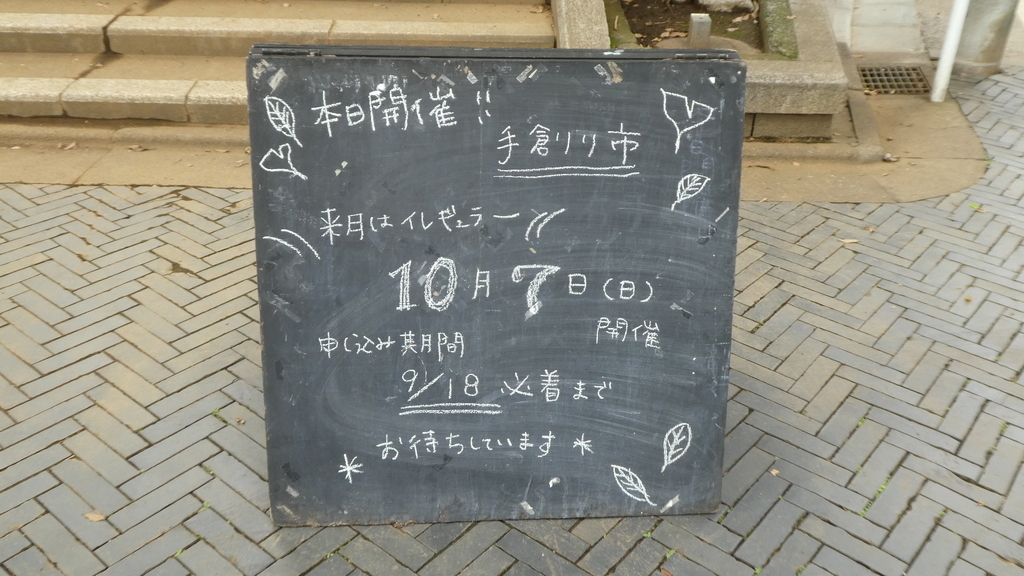 本日開催!!
手創り市
来月はイレギュラー
10月7日(日)
開催
申し込み期間
9/18必着まで
お待ちしています*